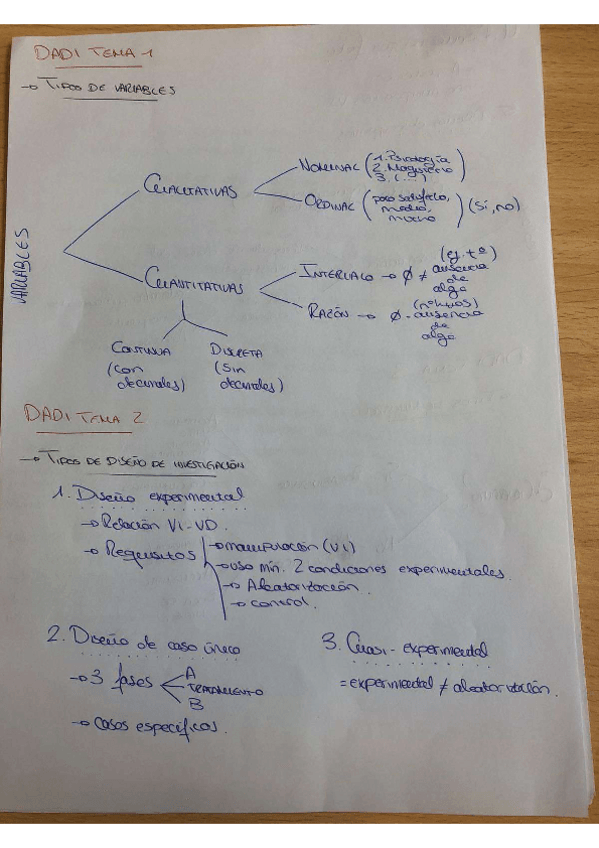 DADI TEMA 1
→ TIPOS DE VARIABLES
VARIABLES
CUALITATIVAS
NOMINAL (1. Psicología
2. Magisterio
3. (...) )
ORDINAL (poco satisfecho,
medio,
mucho) (Sí, no)
CUANTITATIVAS
INTERVALO → Ø ≠ ausencia
de
algo
(ej. tª)
RAZÓN → Ø = ausencia
de
algo
(nº hijos)
CONTINUA
(con
decimales)
DISCRETA
(sin
decimales)
DADI TEMA 2
→ TIPOS DE DISEÑO DE INVESTIGACIÓN
1. Diseño experimental
→ Relación VI-VD.
→ Requisitos
→ manipulación (VI)
→ uso mín. 2 condiciones experimentales.
→ Aleatorización.
→ control.
2. Diseño de caso único
→ 3 fases
A
TRATAMIENTO
B
→ Casos específicos.
3. Cuasi-experimental
= experimental ≠ aleatorización.